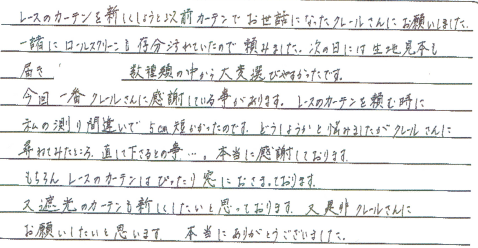 レースのカーテンを新しくしようと以前カーテンでお世話になったクレールさんにお願いしました。
一緒にロールスクリーンも存分汚れていたので頼みました。次の日には生地見本も
届き 数種類の中から大変選びやすかったです。
今回一番クレールさんに感謝している事があります。レースのカーテンを頼む時に
私の測り間違いで5cm短かかったのです。どうしようかと悩みましたがクレールさんに
尋ねてみたところ、直して下さるとの事…。本当に感謝しております。
もちろんレースのカーテンはぴったり窓におさまっております。
又遮光のカーテンも新しくしたいと思っております。又是非クレールさんに
お願いしたいと思います。 本当にありがとうございました。